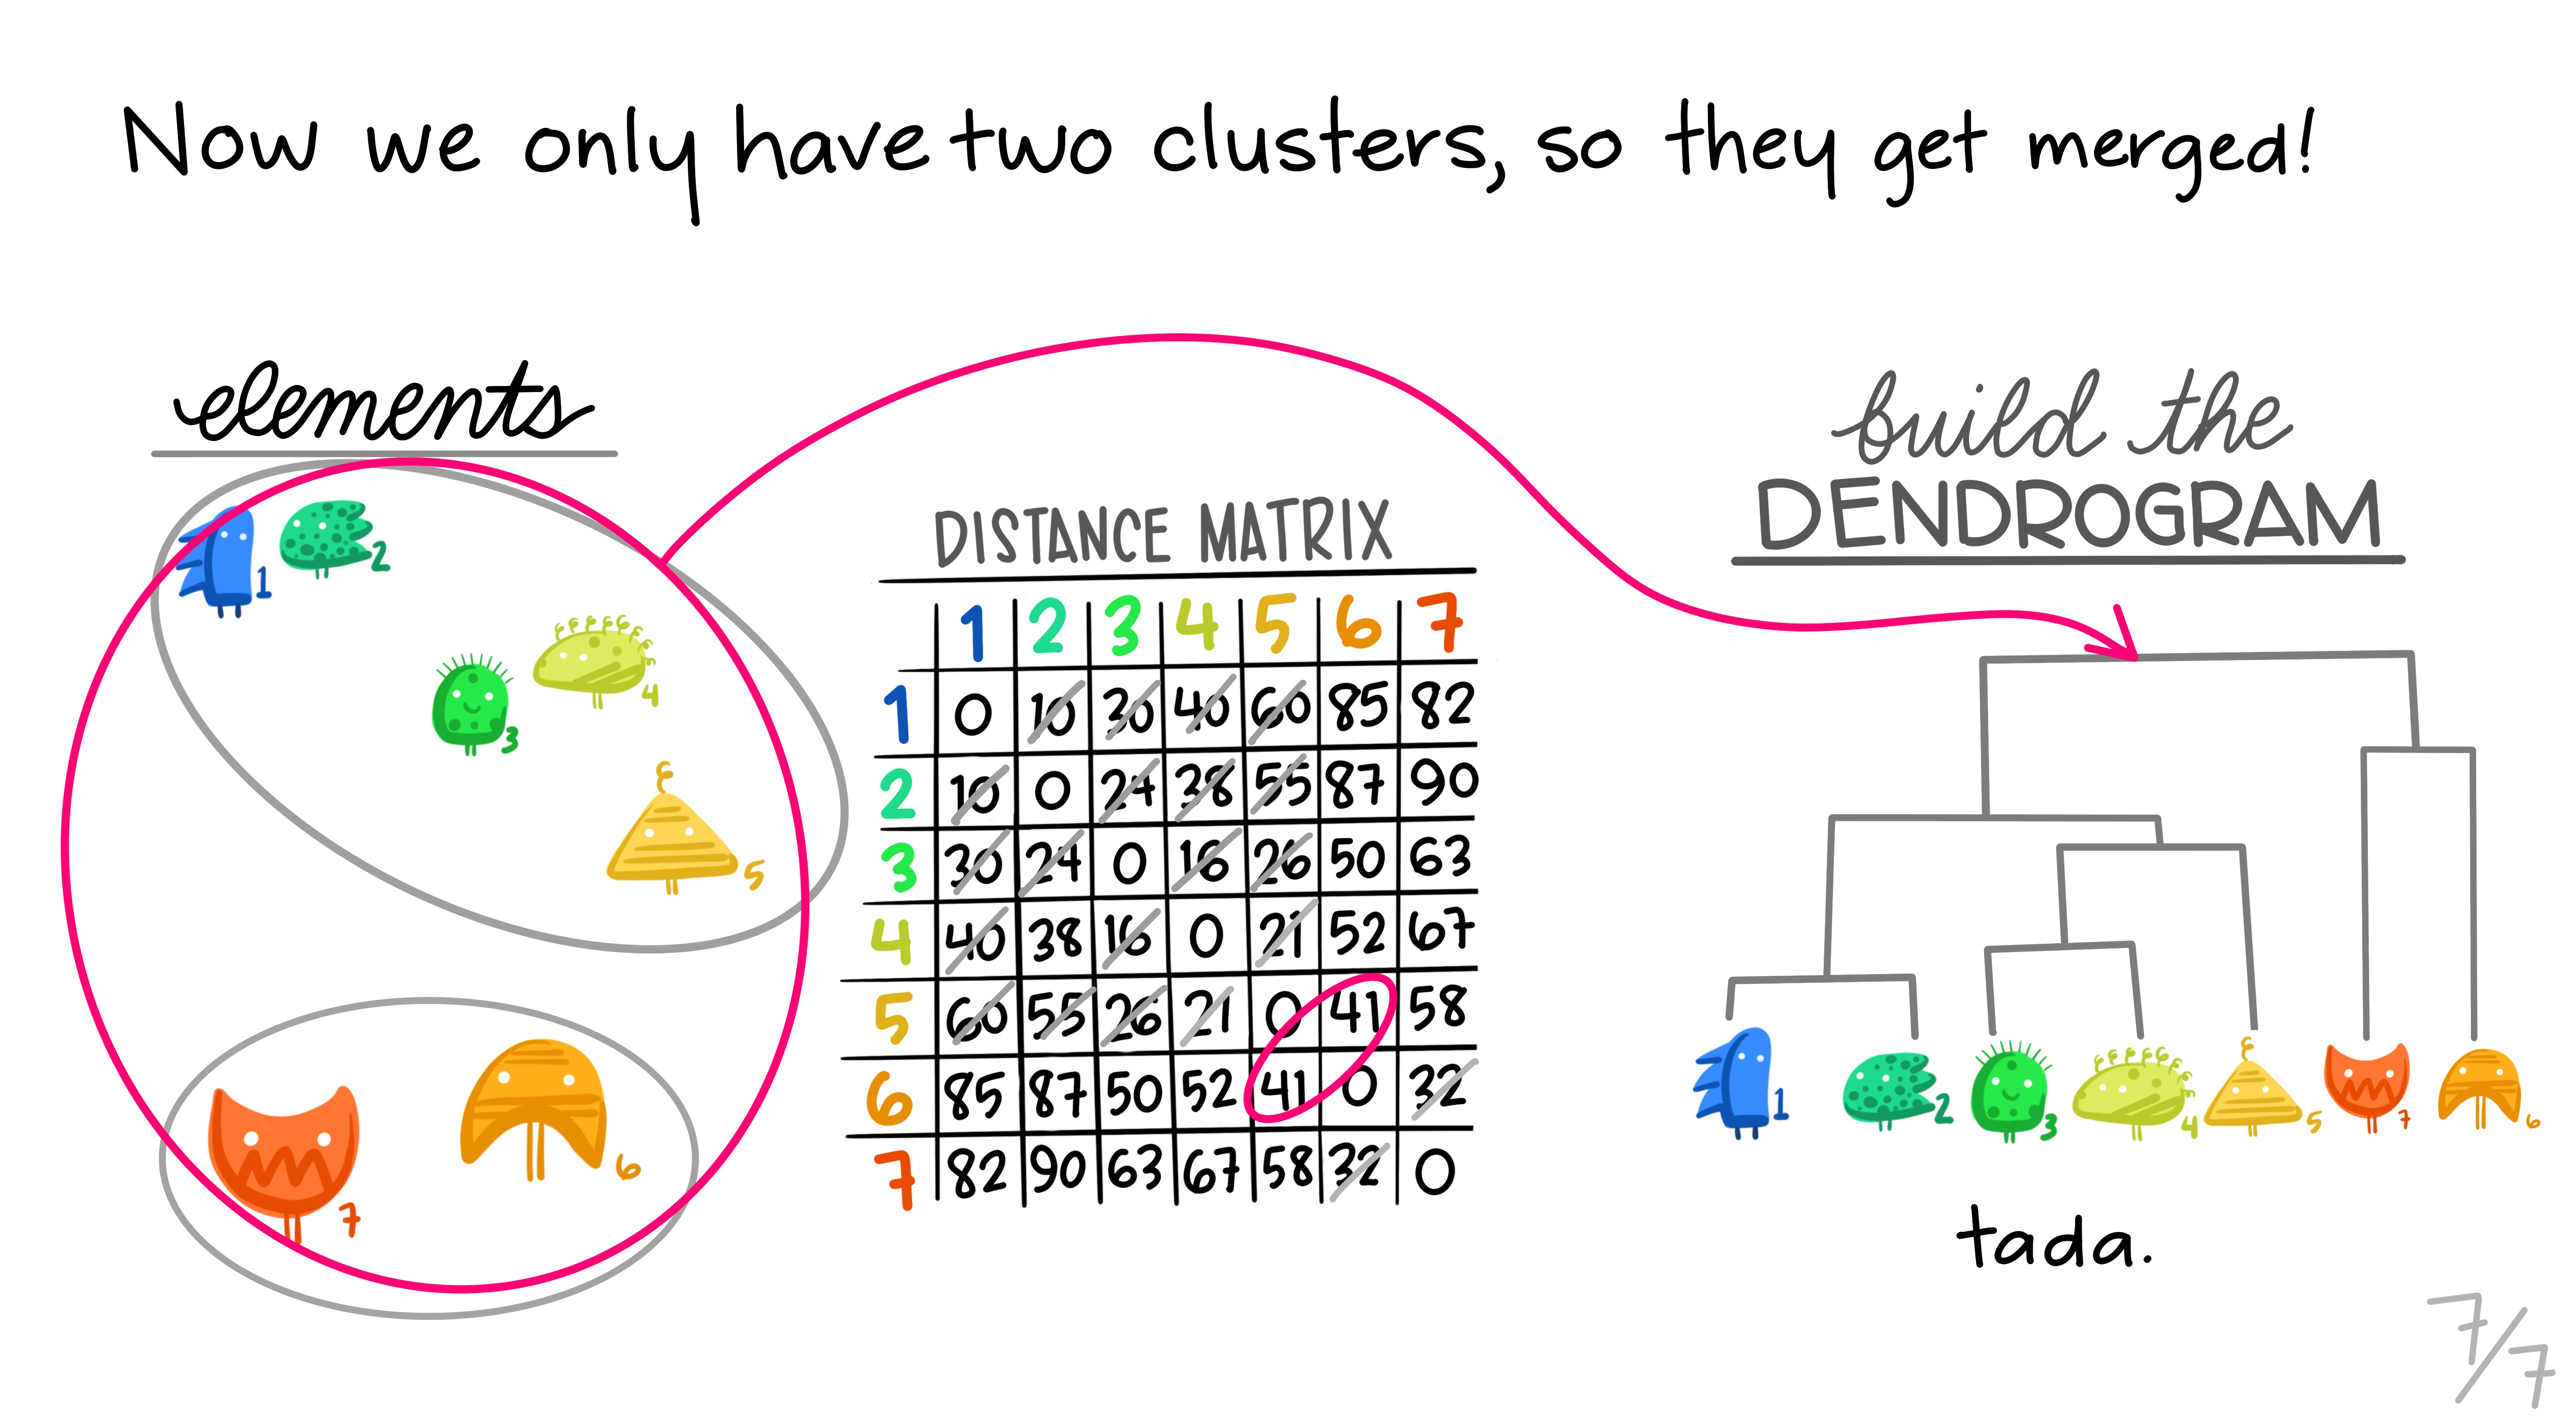 Now we only have two clusters, so they get merged!
elements
1
2
3
4
5
7
6
DISTANCE MATRIX
1 2 3 4 5 6 7
1 0 10 30 40 60 85 82
2 10 0 24 38 55 87 90
3 30 24 0 16 26 50 63
4 40 38 16 0 21 52 67
5 60 55 26 21 0 41 58
6 85 87 50 52 41 0 32
7 82 90 63 67 58 32 0
build the
DENDROGRAM
1 2 3 4 5 7 6
tada.
7/7